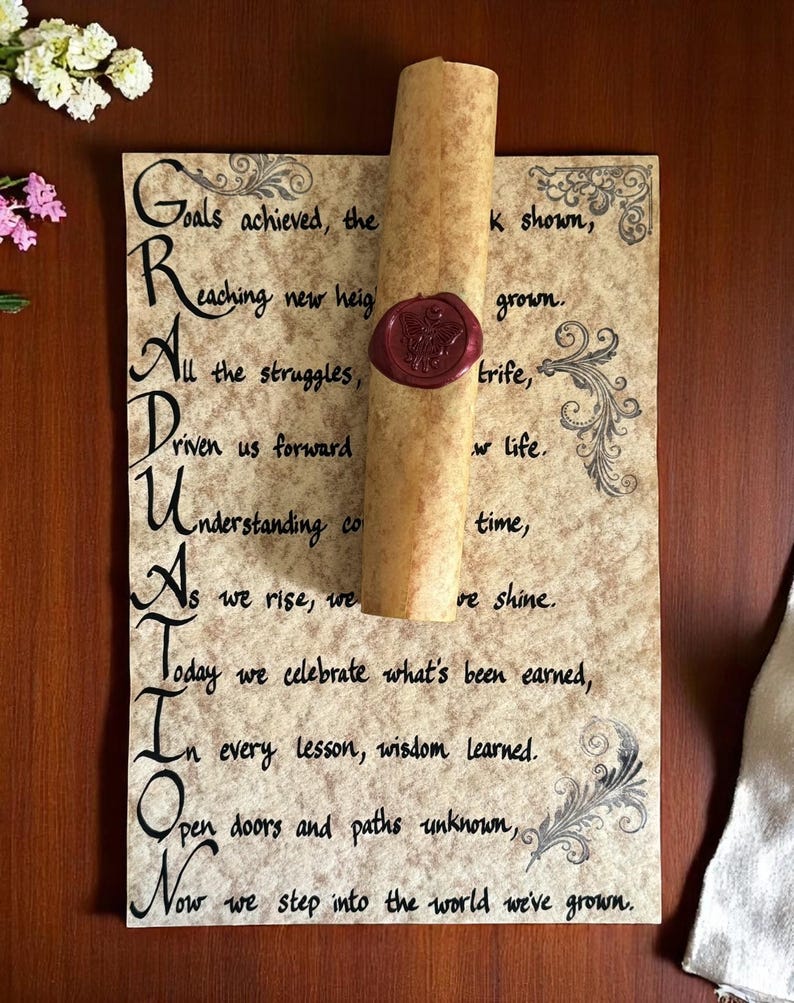 Goals achieved, the shown,
Reaching new grown.
All the struggles,
Driven us forward life.
Understanding time,
As we rise, we shine.
Today we celebrate what's been earned,
In every lesson, wisdom learned.
Open doors and paths unknown,
Now we step into the world we've grown.